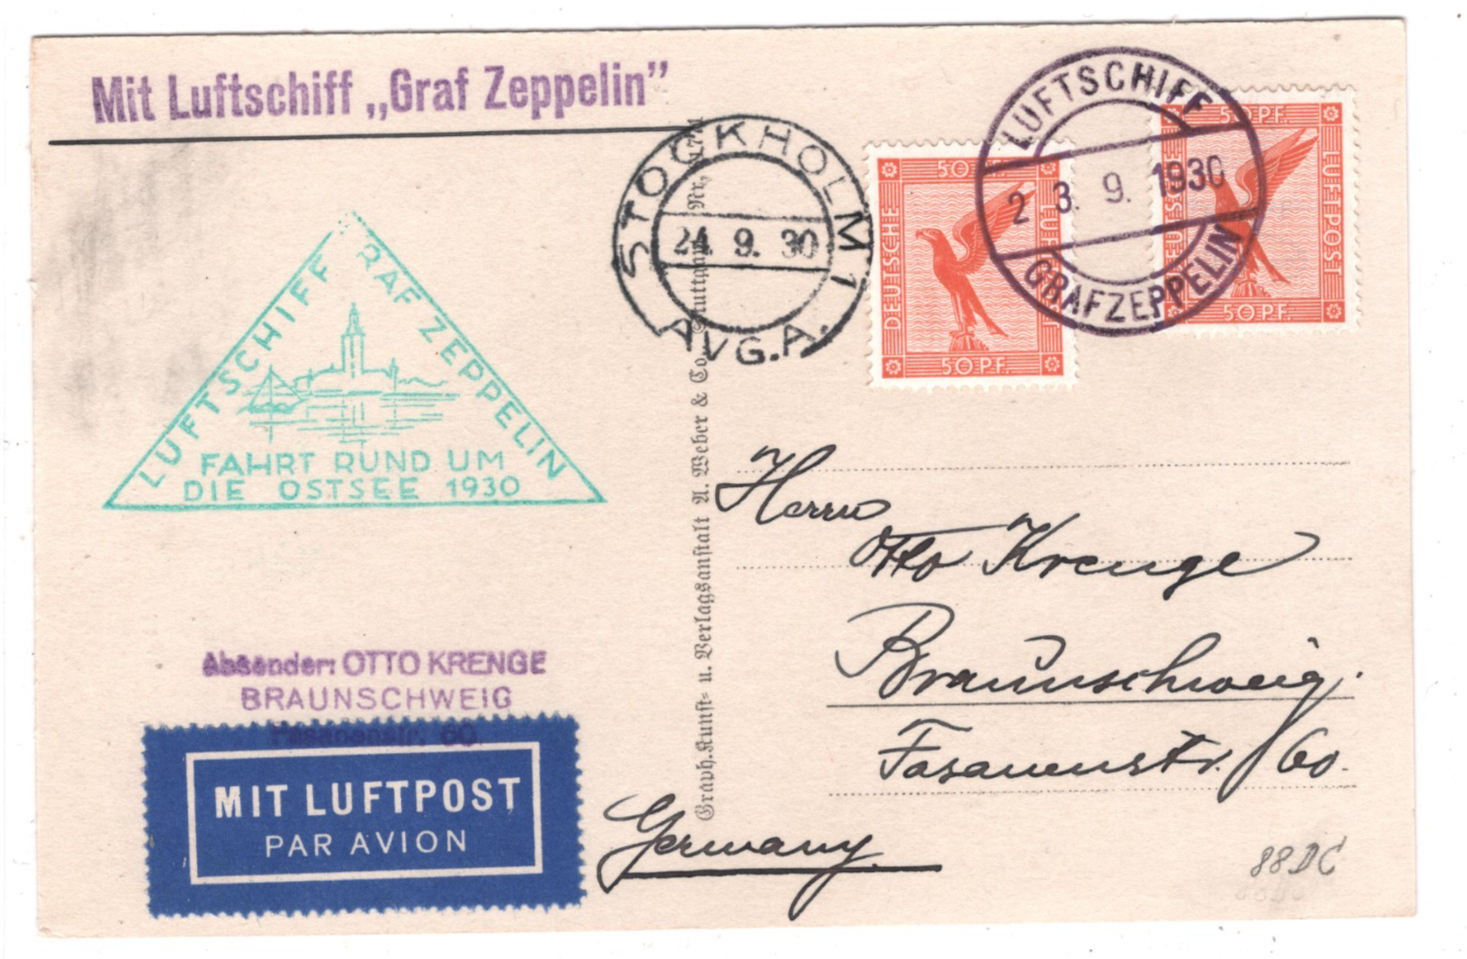 Mit Luftschiff „Graf Zeppelin”
LUFTSCHIFF GRAF ZEPPELIN
FAHRT RUND UM
DIE OSTSEE 1930
STOCKHOLM 1
24 9. 30
AVG.A.
50 PF.
DEUTSCHE LUFTPOST
50 PF.
LUFTSCHIFF
23. 9. 1930
GRAF ZEPPELIN
50 PF.
DEUTSCHE LUFTPOST
50 PF.
Graph. Kunst- u. Verlagsanstalt A. Weber & Co., Stuttgart Nr.
Herrn
Otto Krenge
Braunschweig.
Fasanenstr. 60.
Germany.
Absender: OTTO KRENGE
BRAUNSCHWEIG
Fasanenstr. 60.
MIT LUFTPOST
PAR AVION
88DC